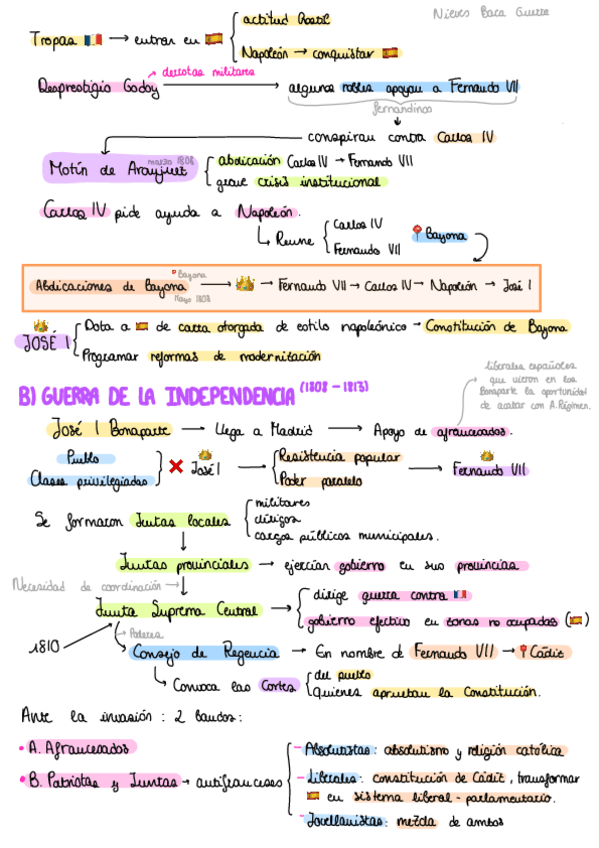 Nieves Baca Guerra
Tropas 🇫🇷 → entrar en 🇪🇸 { actitud hostil
Napoleón → conquistar 🇪🇸
Desprestigio Godoy → derrotas militares → algunos nobles apoyan a Fernando VII
fernandinos
conspiran contra Carlos IV
Motín de Aranjuez marzo 1808 { abdicación Carlos IV → Fernando VII
grave crisis institucional
Carlos IV pide ayuda a Napoleón.
↳ Reúne { Carlos IV
Fernando VII
📍 Bayona
Abdicaciones de Bayona 📍Bayona Mayo 1808 → 👑 → Fernando VII → Carlos IV → Napoleón → José I
👑 JOSÉ I { Dota a 🇪🇸 de carta otorgada de estilo napoleónico → Constitución de Bayona
Programar reformas de modernización
liberales españoles
que vieron en los
Bonaparte la oportunidad
de acabar con A.Régimen.
B) GUERRA DE LA INDEPENDENCIA (1808 – 1813)
José I Bonaparte → llega a Madrid → Apoyo de afrancesados.
Pueblo
Clases privilegiadas } ❌ 👑 José I → { Resistencia popular
Poder paralelo → 👑 Fernando VII
Se formaron Juntas locales { militares
clérigos
cargos públicos municipales.
Juntas provinciales → ejercían gobierno en sus provincias
Necesidad de coordinación →
Junta Suprema Central → { dirige guerra contra 🇫🇷
gobierno efectivo en zonas no ocupadas (🇪🇸)
1810
Poderes
Consejo de Regencia → En nombre de Fernando VII → 📍Cádiz
↳ Convoca las Cortes { del pueblo
quienes aprueban la Constitución.
Ante la invasión : 2 bandos:
• A. Afrancesados
• B. Patriotas y Juntas → antifranceses { – Absolutistas: absolutismo y religión católica
– Liberales: constitución de Cádiz, transformar
🇪🇸 en sistema liberal - parlamentario.
– Jovellanistas: mezcla de ambos